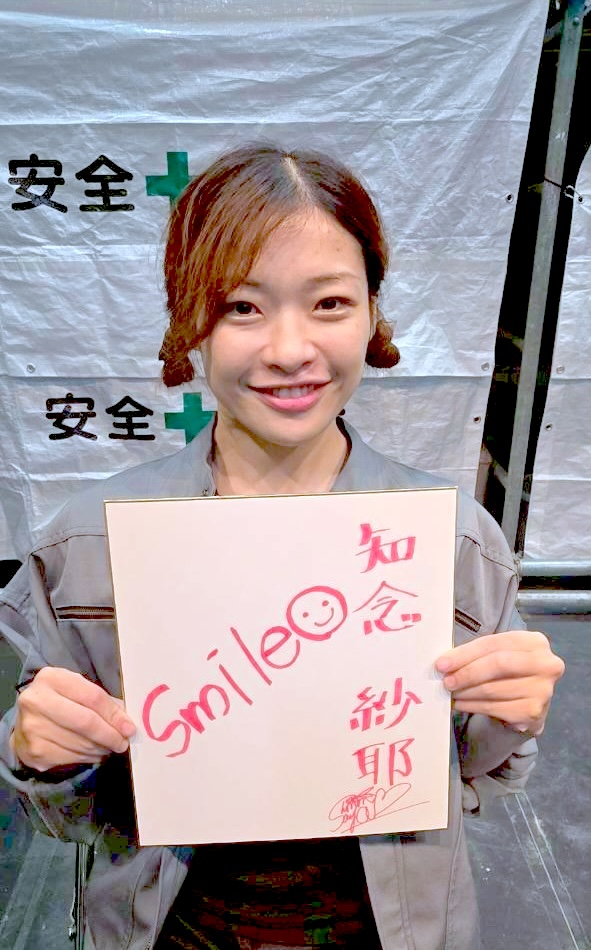 安全
安全
Smile
知念 紗耶